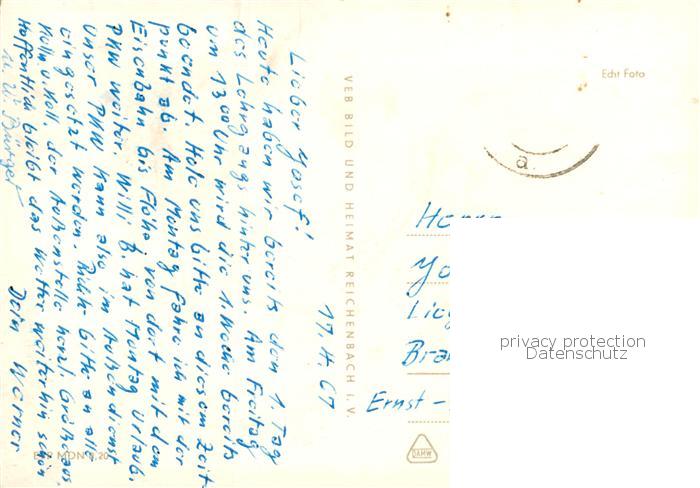 17. 4. 67
Lieber Josef!
Heute haben wir bereits den 1. Tag
des Lehrgangs hinter uns. Am Freitag
um 13 00 Uhr wird die 1. Woche bereits
beendet. Hole uns bitte an diesem Zeit-
punkt ab. Am Montag fahre ich mit der
Eisenbahn bis Flöha, von dort mit dem
PKW weiter. Willi B. hat Montag Urlaub.
Unser PKW kann also im Außendienst
eingesetzt werden. Richte bitte an alle
Kolln. u. Koll. der Außenstelle herzl. Grüße aus.
Hoffentlich bleibt das Wetter weiterhin schön
Dein Werner
VEB BILD UND HEIMAT REICHENBACH I. V.
Echt Foto
a
Herrn
Jo
Bran
Ernst-
privacy protection
Datenschutz
DAMW
MDN 0,20